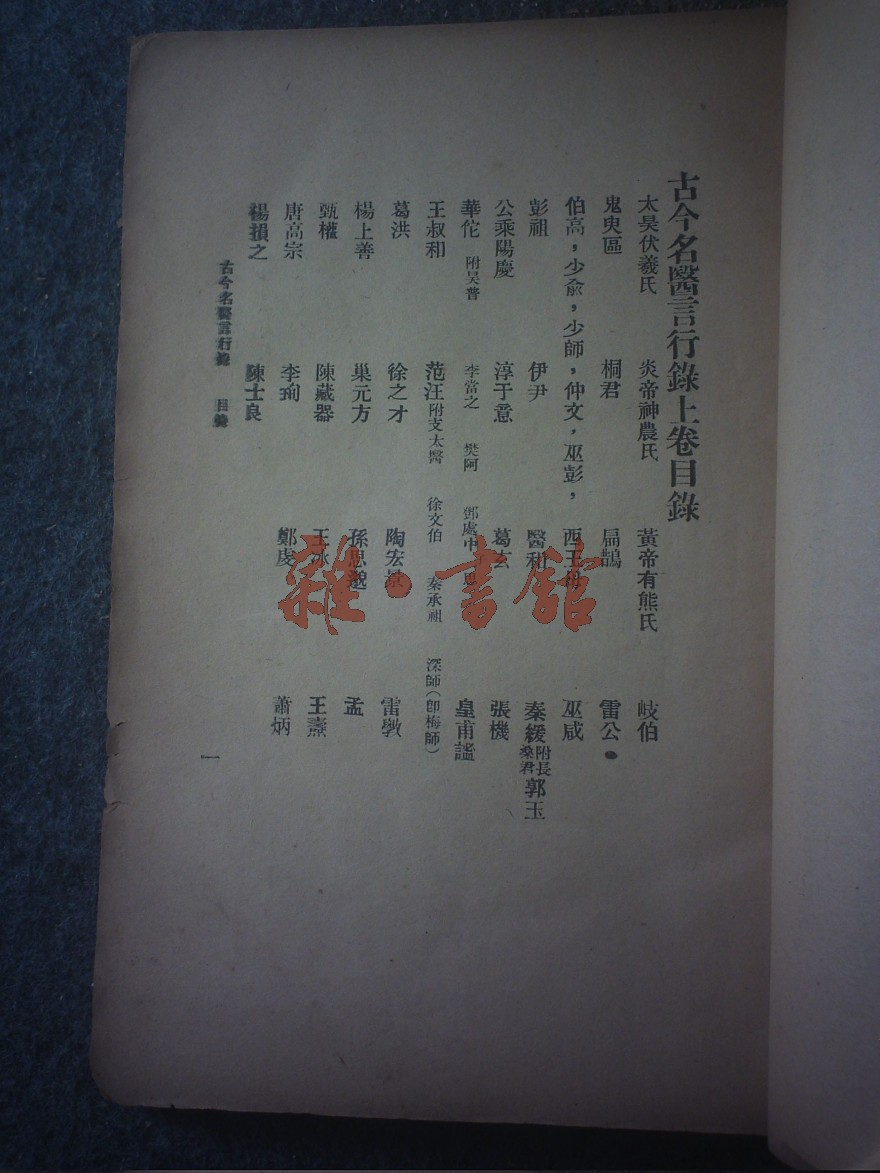 古今名醫言行錄上卷目錄
太昊伏羲氏 炎帝神農氏 黃帝有熊氏 岐伯
鬼臾區 桐君 扁鵲 雷公
伯高，少兪，少師，仲文，巫彭， 西王母 巫咸
彭祖 伊尹 醫和 秦緩 附長桑君 郭玉
公乘陽慶 淳于意 葛玄 張機
華佗 附吳普 李當之 樊阿 鄧處中 皇甫謐
王叔和 范汪 附支太醫 徐文伯 秦承祖 深師（卽梅師）
葛洪 徐之才 陶宏景 雷斆
楊上善 巢元方 孫思邈 孟
甄權 陳藏器 王冰 王燾
唐高宗 李珣 鄭虔 蕭炳
楊損之 陳士良
古今名醫言行錄 目錄
一
雜·書館